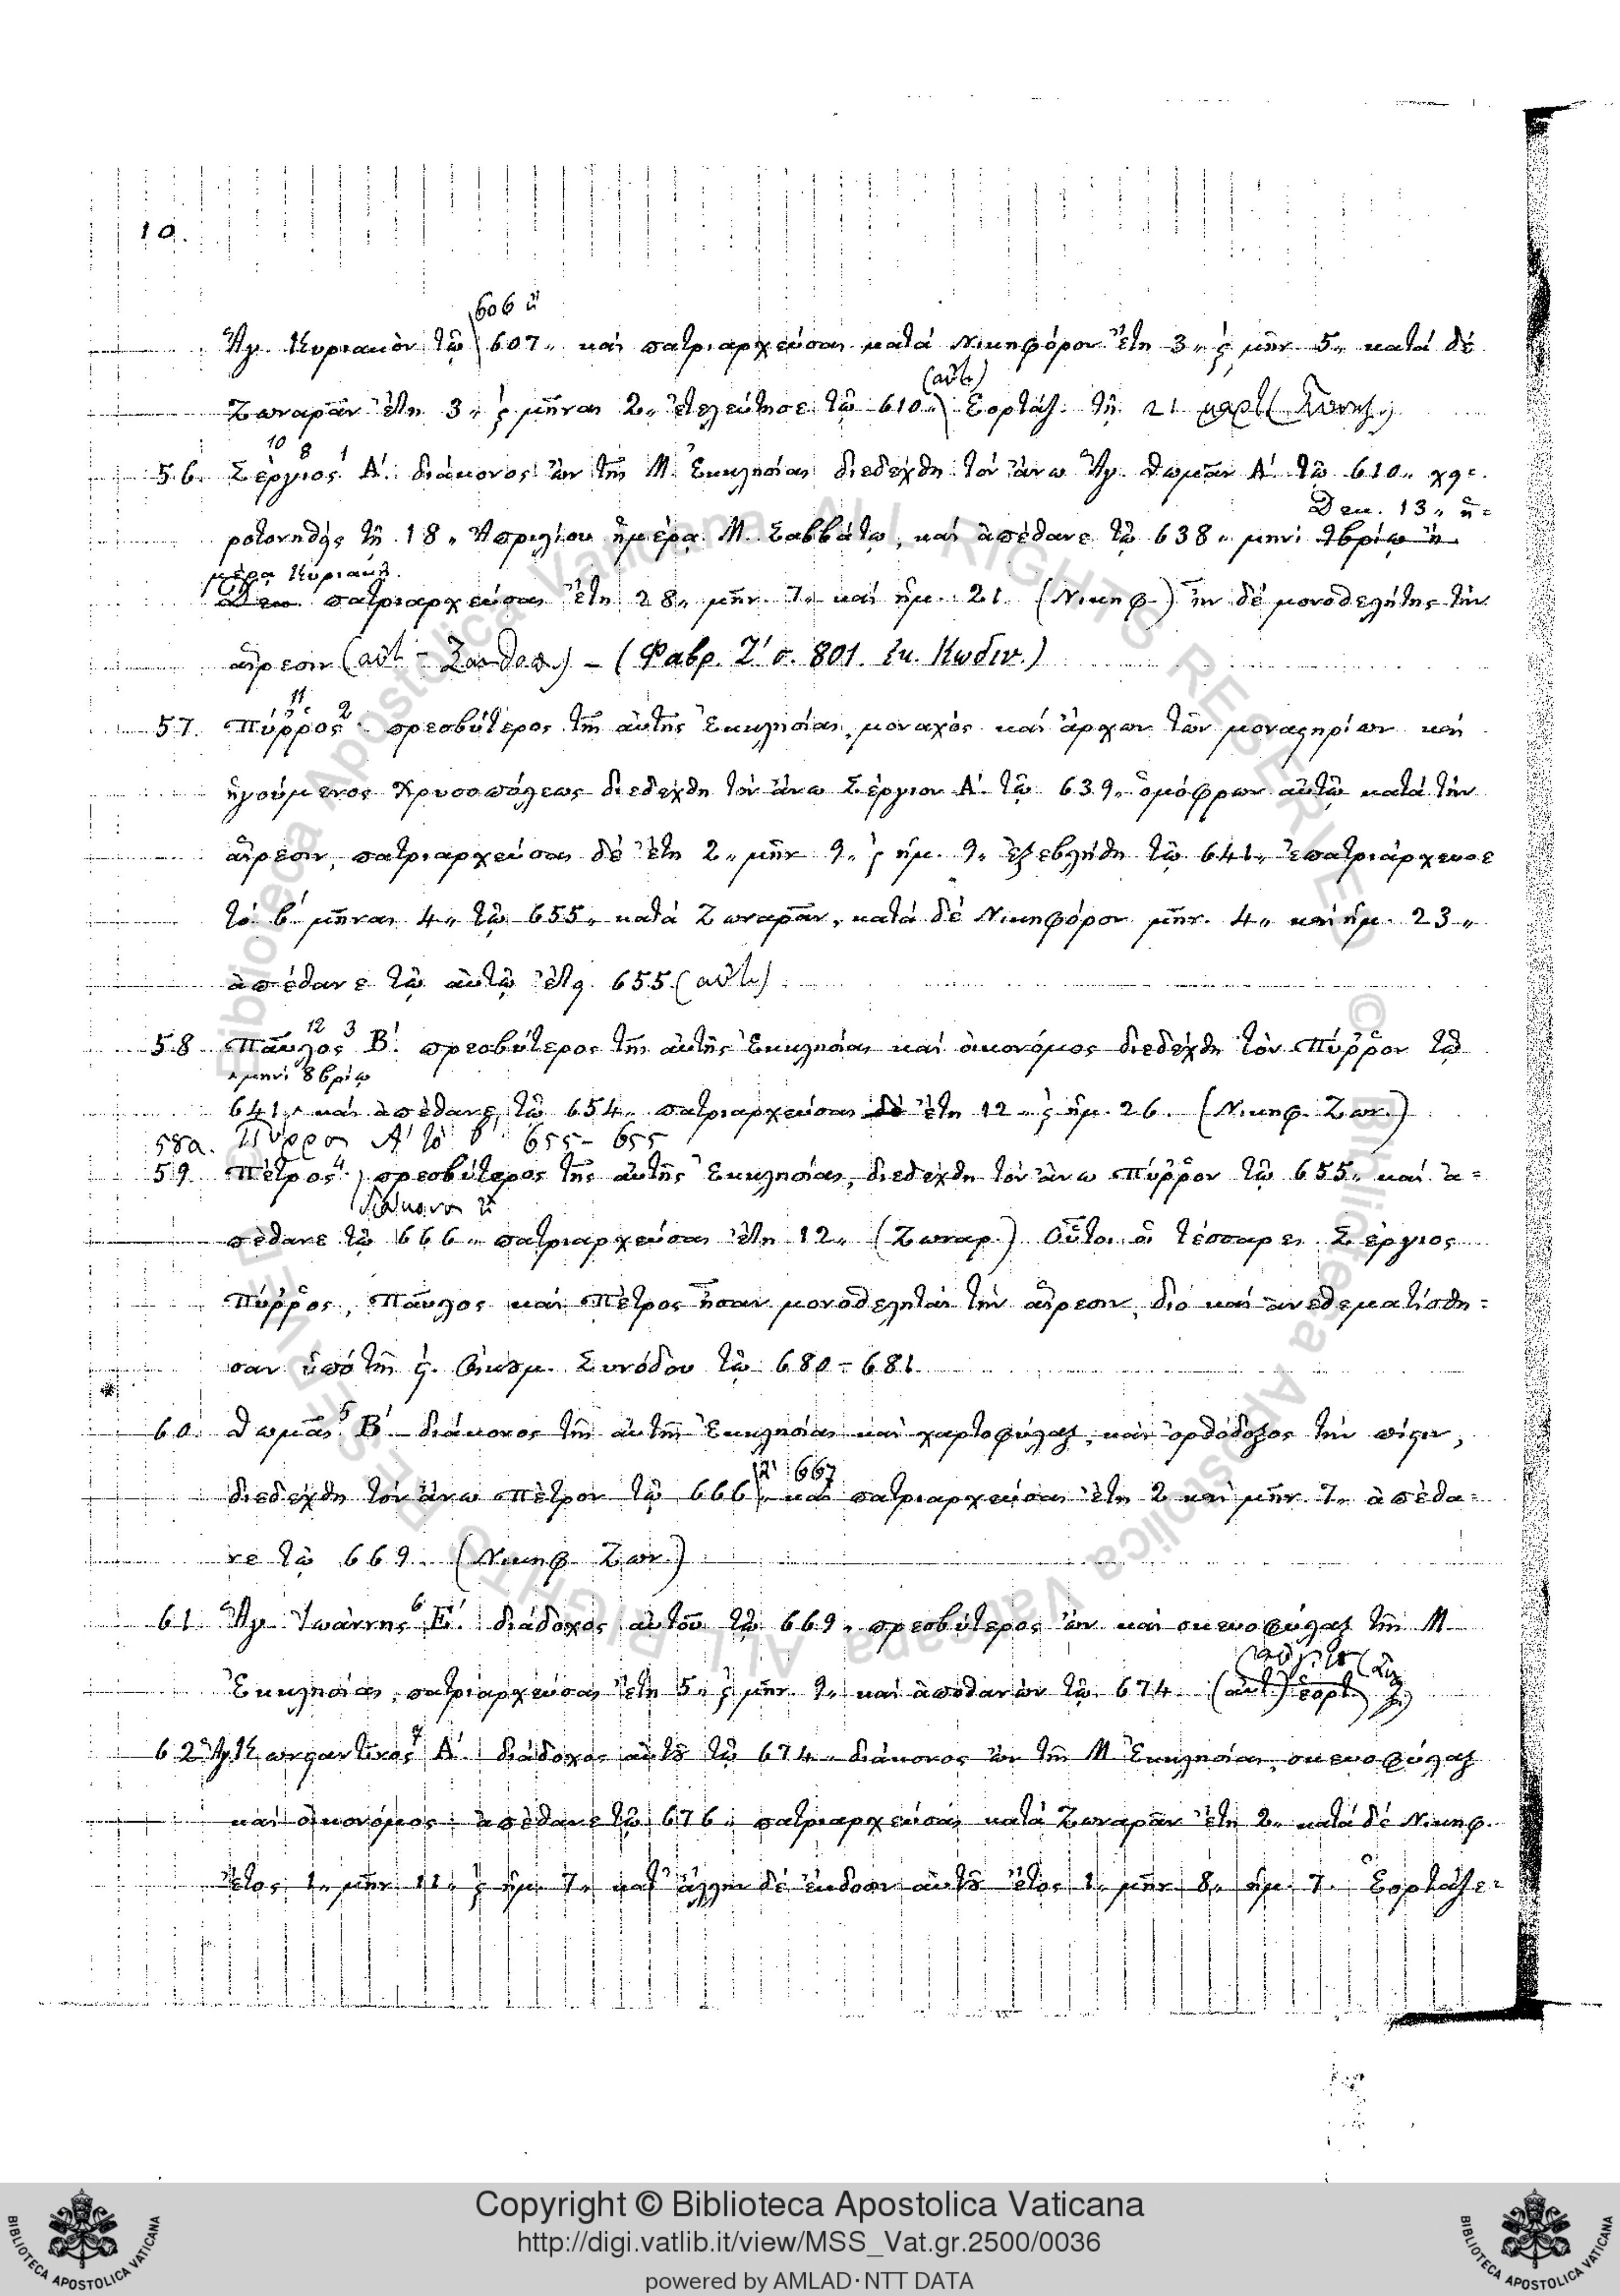 10.
606 ἢ
Ἅγ. Κυριακὸν τῷ 607,, καὶ πατριαρχεύσας κατὰ Νικηφόρον ἔτη 3,, ϛ μῆν. 5,, κατὰ δὲ
Ζωναρᾶν ἔτη 3,, ϛ μῆνας 2,, ἐτελεύτησε τῷ 610,, (αὐτ.) Ἑορτάζ. τῇ 21 μαρτ
10 8 1
56. Σέργιος Α΄. διάκονος ὢν τῆς Μ. Ἐκκλησίας διεδέχθη τὸν ἄνω Ἅγ. Θωμᾶν Α΄. τῷ 610,, χει-
Δεκ. 13,, ἡ-
ροτονηθεὶς τῇ 18,, Ἀπριλίου ἡμέρᾳ Μ. Σαββάτῳ, καὶ ἀπέθανε τῷ 638,, μηνὶ 9βρίῳ ἡ
μέρᾳ Κυριακῇ.
πατριαρχεύσας ἔτη 28,, μῆν. 7,, καὶ ἡμ. 21. (Νικηφ.) ἦν δὲ μονοθελήτης τὴν
αἵρεσιν (Φαβρ. Ζ΄ σ. 801. ἐκ. Κωδιν.)
11 2
57. Πύῤῥος πρεσβύτερος τῆς αὐτῆς Ἐκκλησίας, μοναχὸς καὶ ἄρχων τῶν μοναστηρίων καὶ
ἡγούμενος Χρυσοπόλεως διεδέχθη τὸν ἄνω Σέργιον Α΄. τῷ 639,, ὁμόφρων αὐτῷ κατὰ τὴν
αἵρεσιν, πατριαρχεύσας δὲ ἔτη 2,, μῆν. 9,, ϛ ἡμ. 9,, ἐξεβλήθη τῷ 641,, ἐπατριάρχευσε
τὸ β΄ μῆνας 4,, τῷ 655,, κατὰ Ζωναρᾶν, κατὰ δὲ Νικηφόρον μῆν. 4,, καὶ ἡμ. 23,,
ἀπέθανε τῷ αὐτῷ ἔτει 655 (αὐτ.)
12 3
58 Παῦλος Β΄. πρεσβύτερος τῆς αὐτῆς Ἐκκλησίας καὶ οἰκονόμος διεδέχθη τὸν Πύῤῥον τῷ
μηνὶ 8βρίῳ
641,, καὶ ἀπέθανε τῷ 654,, πατριαρχεύσας δὲ ἔτη 12,, ϛ ἡμ. 26. (Νικηφ. Ζων.)
58α. Πύρρος Α΄ τὸ β΄ 655- 655
59. Πέτρος 4. πρεσβύτερος τῆς αὐτῆς Ἐκκλησίας, διεδέχθη τὸν ἄνω Πύῤῥον τῷ 655,, καὶ ἀ-
διάκονος ἢ
πέθανε τῷ 666,, πατριαρχεύσας ἔτη 12,, (Ζωναρ.) Οὗτοι οἱ τέσσαρες Σέργιος
Πύῤῥος, Παῦλος καὶ Πέτρος ἦσαν μονοθελῆται τὴν αἵρεσιν, διὸ καὶ ἀνεθεματίσθη-
σαν ὑπὸ τῆς ϛ. Οἰκουμ. Συνόδου τῷ 680-681.
5
60. Θωμᾶς Β΄ διάκονος τῆς αὐτῆς Ἐκκλησίας καὶ χαρτοφύλαξ, καὶ ὀρθόδοξος τὴν πίστιν,
ἢ 667
διεδέχθη τὸν ἄνω Πέτρον τῷ 666,, καὶ πατριαρχεύσας ἔτη 2 καὶ μῆν. 7,, ἀπέθα-
νε τῷ 669. (Νικηφ. Ζων.)
6
61. Ἅγ. Ἰωάννης Ε΄. διάδοχος αὐτοῦ τῷ 669,, πρεσβύτερος ὢν καὶ σκευοφύλαξ τῆς Μ.
Ἐκκλησίας, πατριαρχεύσας ἔτη 5,, ϛ μῆν. 9,, καὶ ἀποθανὼν τῷ 674. (αὐτ.) ἑορτ.
7
62 Ἅγ. Κωνσταντῖνος Α΄. διάδοχος αὐτοῦ τῷ 674,, διάκονος ὢν τῆς Μ. Ἐκκλησίας, σκευοφύλαξ
καὶ οἰκονόμος· ἀπέθανε τῷ 676,, πατριαρχεύσας κατὰ Ζωναρᾶν ἔτη 2,, κατὰ δὲ Νικηφ.
ἔτος 1,, μῆν. 11,, ϛ ἡμ. 7,, κατ' ἄλλην δὲ ἔκδοσιν αὐτοῦ ἔτος 1,, μῆν. 8,, ἡμ. 7. Ἑορτάζε-
Copyright © Biblioteca Apostolica Vaticana
http://digi.vatlib.it/view/MSS_Vat.gr.2500/0036
powered by AMLAD·NTT DATA